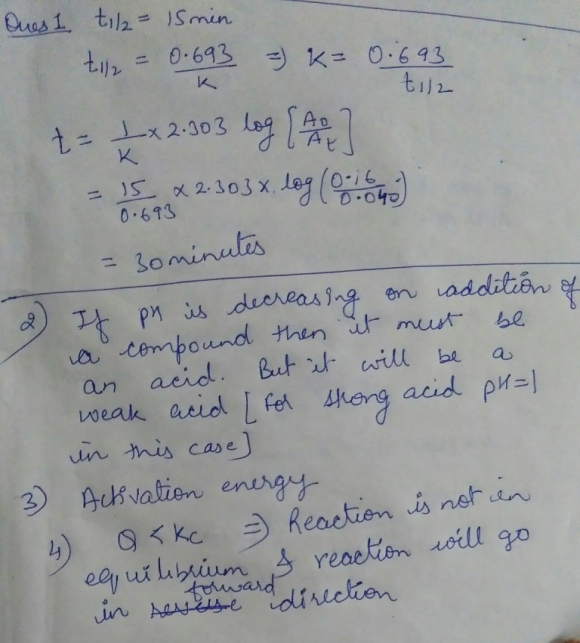 Ques 1 t1/2 = 15min
t1/2 = 0.693/K ⇒ K = 0.693/t1/2
t = 1/K × 2.303 log [A0/At]
= 15/0.693 × 2.303 × log (0.16/0.040)
= 30 minutes
2) If pH is decreasing on addition of
a compound then it must be
an acid. But it will be a
weak acid [for strong acid pH=1
in this case]
3) Activation energy
4) Q < Kc ⇒ Reaction is not in
equilibrium & reaction will go
forward
in reverse direction